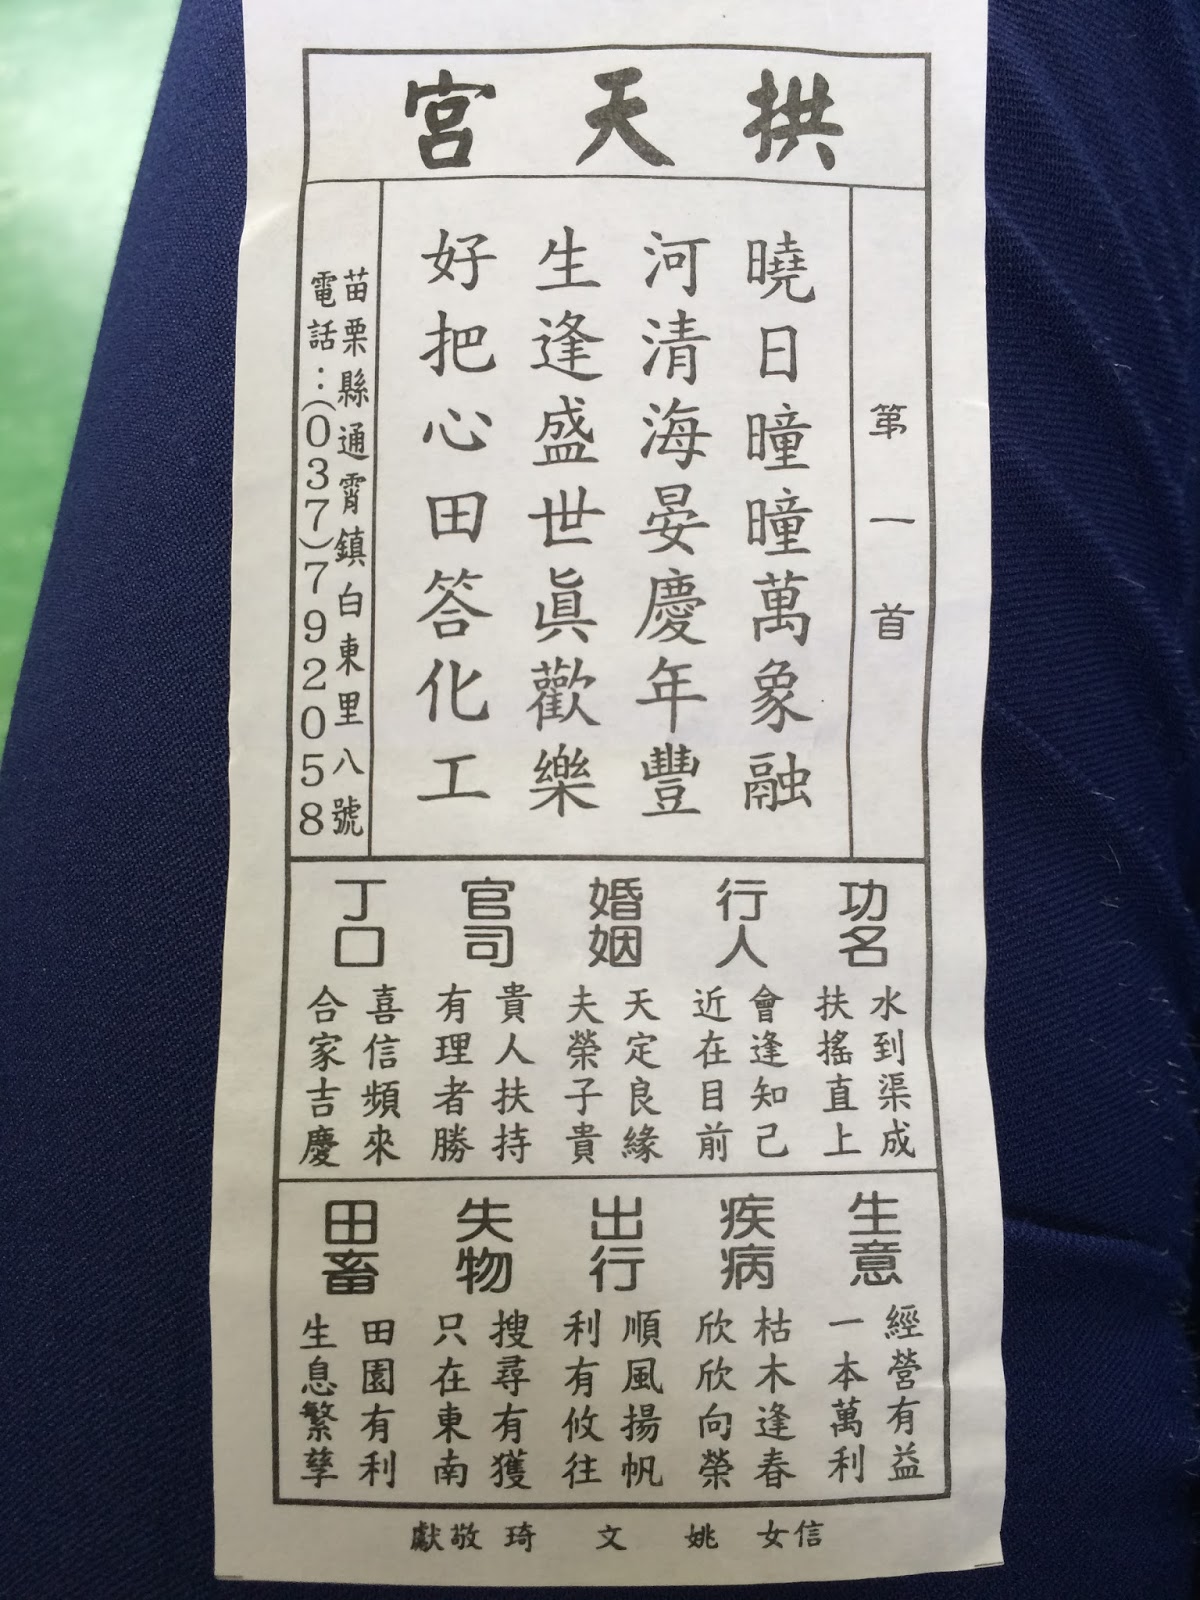 拱天宮
第一首
曉日曈曈萬象融
河清海晏慶年豐
生逢盛世眞歡樂
好把心田答化工
苗栗縣通霄鎮白東里八號
電話：(037)792058
功名
水到渠成
扶搖直上
行人
會逢知己
近在目前
婚姻
天定良緣
夫榮子貴
官司
貴人扶持
有理者勝
丁口
喜信頻來
合家吉慶
生意
經營有益
一本萬利
疾病
枯木逢春
欣欣向榮
出行
順風揚帆
利有攸往
失物
搜尋有獲
只在東南
田畜
田園有利
生息繁孳
信女 姚 文 琦 敬獻